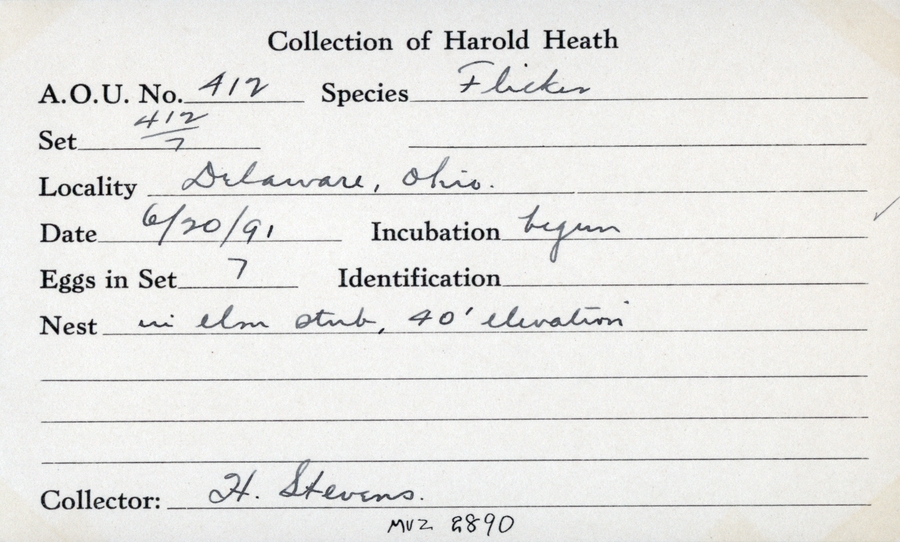 Collection of Harold Heath
A.O.U. No. 412 Species Flicker
Set 412/7
Locality Delaware, Ohio.
Date 6/20/91 Incubation begun
Eggs in Set 7 Identification
Nest in elm stub, 40' elevation
Collector: H. Stevens.
MVZ 8890